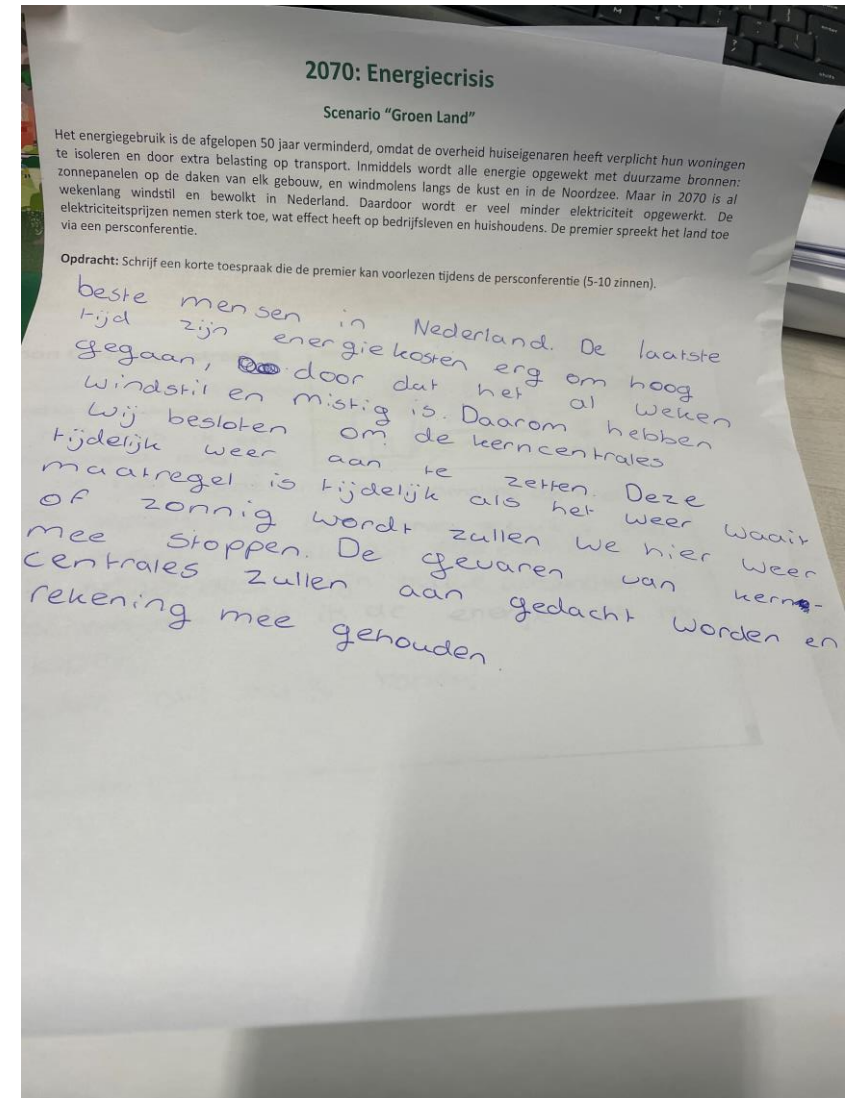 2070: Energiecrisis
Scenario “Groen Land”
Het energiegebruik is de afgelopen 50 jaar verminderd, omdat de overheid huiseigenaren heeft verplicht hun woningen
te isoleren en door extra belasting op transport. Inmiddels wordt alle energie opgewekt met duurzame bronnen:
zonnepanelen op de daken van elk gebouw, en windmolens langs de kust en in de Noordzee. Maar in 2070 is al
wekenlang windstil en bewolkt in Nederland. Daardoor wordt er veel minder elektriciteit opgewerkt. De
elektriciteitsprijzen nemen sterk toe, wat effect heeft op bedrijfsleven en huishoudens. De premier spreekt het land toe
via een persconferentie.
Opdracht: Schrijf een korte toespraak die de premier kan voorlezen tijdens de persconferentie (5-10 zinnen).
beste mensen in Nederland. De laatste
tijd zijn energiekosten erg om hoog
gegaan, door dat het al weken
windstil en mistig is. Daarom hebben
wij besloten om de kerncentrales
tijdelijk weer aan te zetten. Deze
maatregel is tijdelijk als het weer waait
of zonnig wordt zullen we hier weer
mee stoppen. De gevaren van kern-
centrales zullen aan gedacht worden en
rekening mee gehouden.